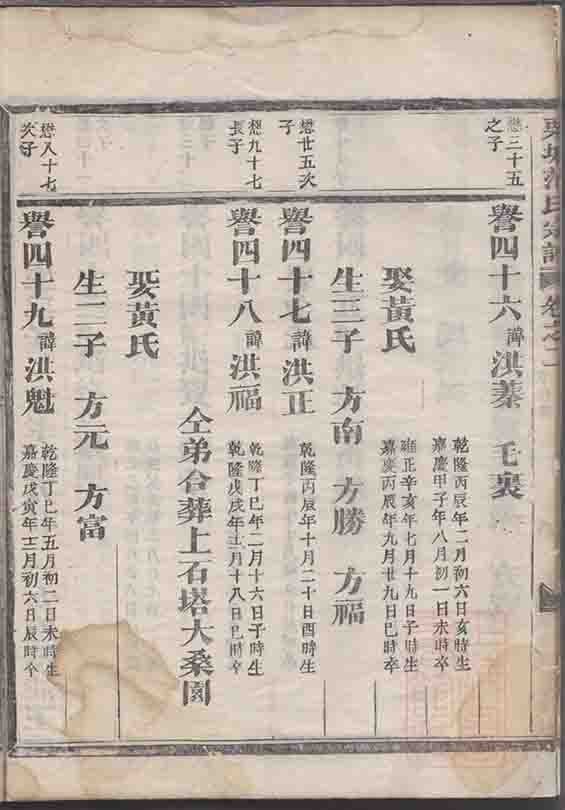 氏宗譜 卷之二
懋三十五
之子
譽四十六諱洪蓁 毛裏
乾隆丙辰年二月初六日亥時生
嘉慶甲子年八月初一日未時卒
娶黃氏
雍正辛亥年七月十九日子時生
嘉慶丙辰年九月廿九日巳時卒
生三子 方南 方勝 方福
懋廿五次
子
譽四十七諱洪正
乾隆丙辰年十月二十日酉時生
懋九十七
長子
譽四十八諱洪福
乾隆丁巳年二月十六日子時生
乾隆戊戌年十二月十八日巳時卒
仝弟合葬上石塔大桑園
娶黃氏
生二子 方元 方富
懋八十七
次子
譽四十九諱洪魁
乾隆丁巳年五月初二日未時生
嘉慶戊寅年十二月初六日辰時卒